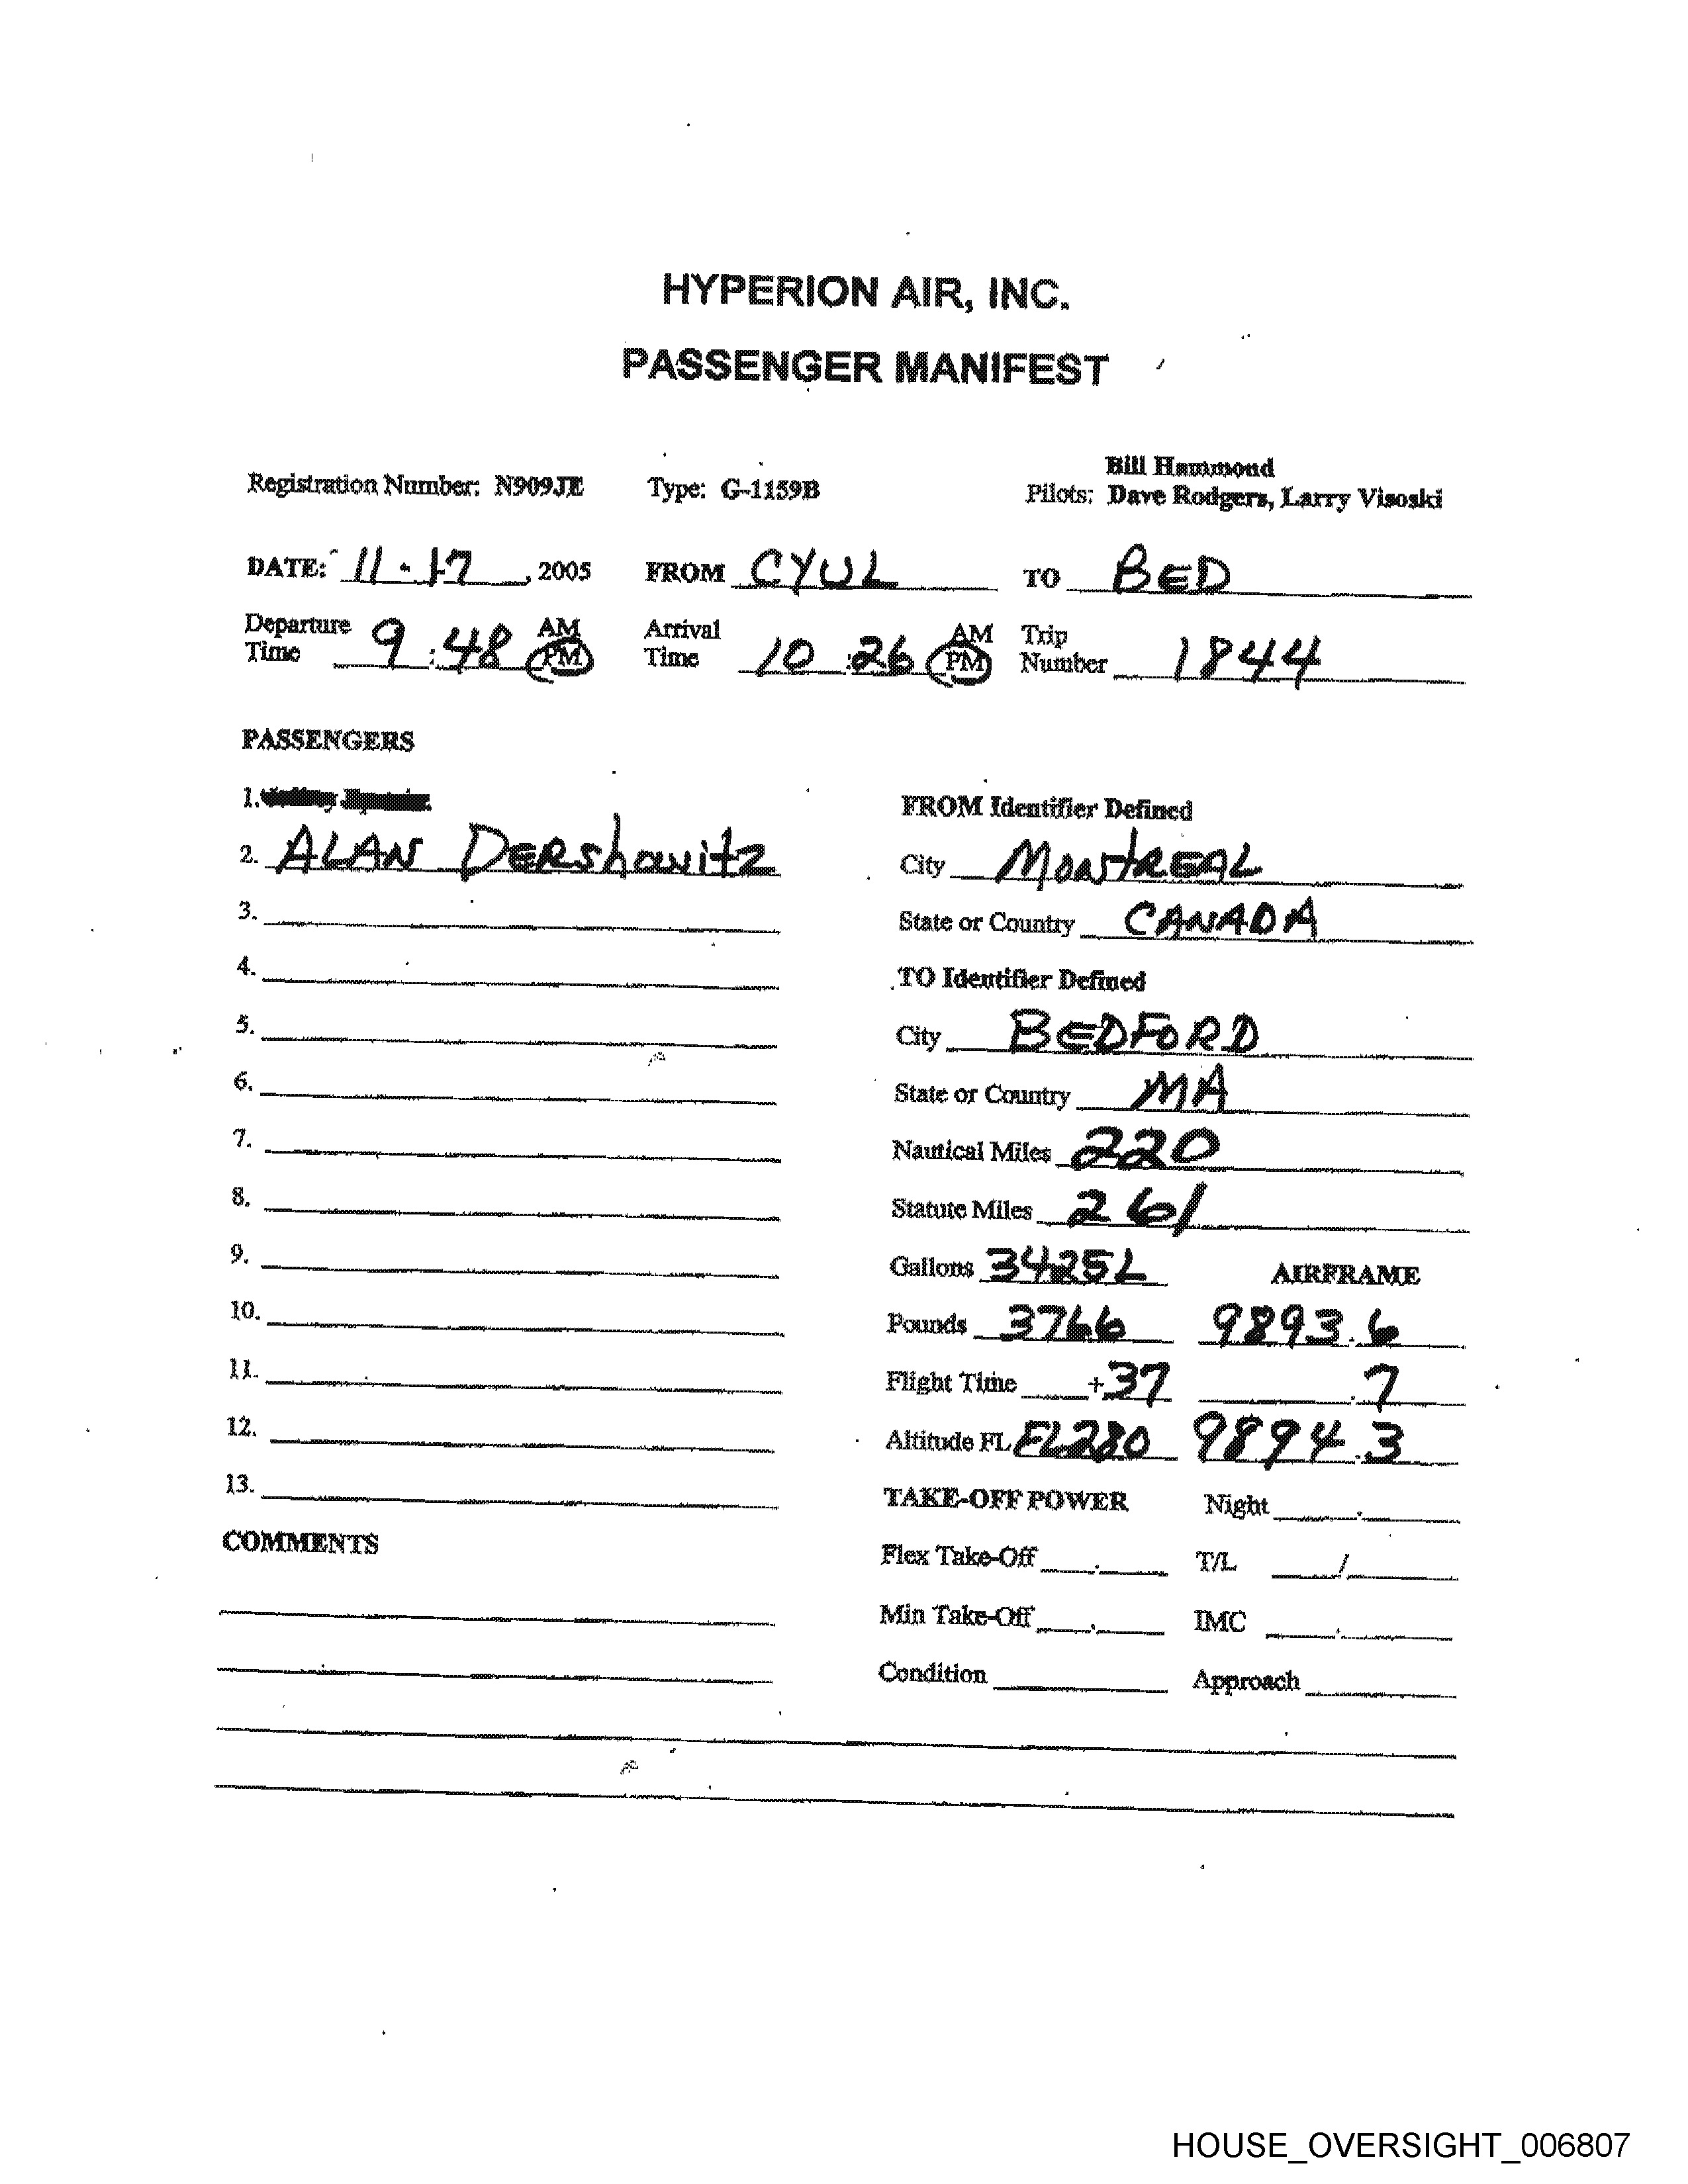 HYPERION AIR, INC.
PASSENGER MANIFEST
Bill Hammond
Registration Number: N909JE Type: G-1159B Pilots: Dave Rodgers, Larry Visoski
DATE: 11-17, 2005 FROM CYUL TO BED
Departure Time 9:48 AM PM Arrival Time 10:26 AM PM Trip Number 1844
PASSENGERS
1.
FROM Identifier Defined
2. ALAN DERShowitz
City MONTREAL
3.
State or Country CANADA
4.
TO Identifier Defined
5.
City BEDFORD
6.
State or Country MA
7.
Nautical Miles 220
8.
Statute Miles 261
9.
Gallons 3425L AIRFRAME
10.
Pounds 3766 9893.6
11.
Flight Time +37 .7
12.
Altitude FL FL280 9894.3
13.
TAKE-OFF POWER Night .
COMMENTS
Flex Take-Off . T/L /
Min Take-Off . IMC .
Condition Approach
HOUSE_OVERSIGHT_006807